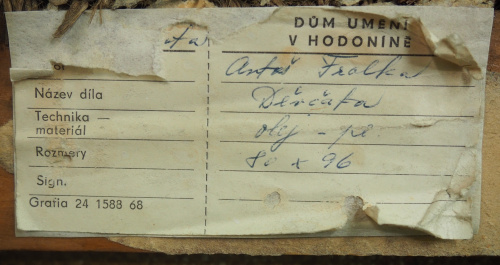 DŮM UMENÍ
V HODONÍNĚ
Antoš Frolka
Název díla Děvčata
Technika — materiál olej - pl.
Rozmery 80 x 96
Sign.
Grafia 24 1588 68